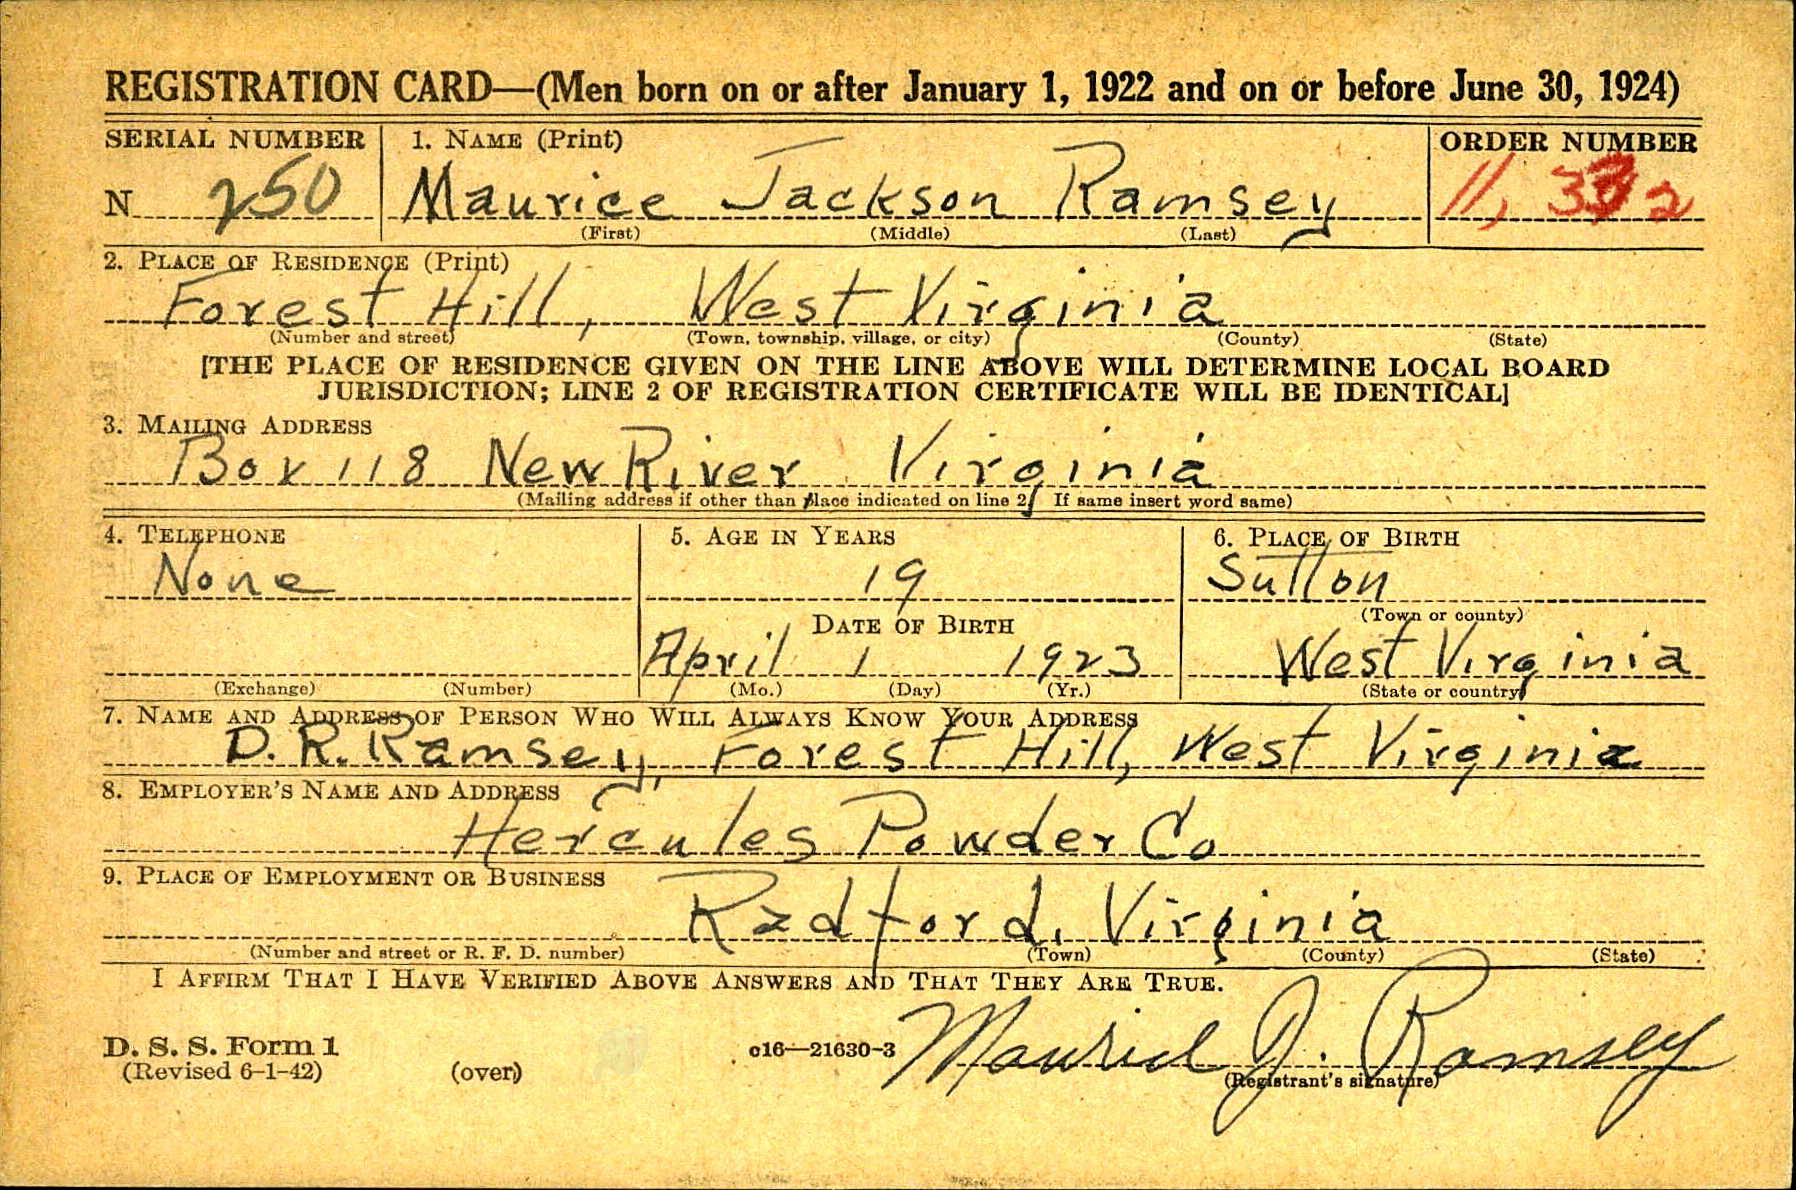 REGISTRATION CARD—(Men born on or after January 1, 1922 and on or before June 30, 1924)
SERIAL NUMBER 1. NAME (Print) ORDER NUMBER
N 250 Maurice Jackson Ramsey 11,
(First) (Middle) (Last)
2. PLACE OF RESIDENCE (Print)
Forest Hill, West Virginia
(Number and street) (Town, township, village, or city) (County) (State)
[THE PLACE OF RESIDENCE GIVEN ON THE LINE ABOVE WILL DETERMINE LOCAL BOARD
JURISDICTION; LINE 2 OF REGISTRATION CERTIFICATE WILL BE IDENTICAL]
3. MAILING ADDRESS
Box 118 New River Virginia
(Mailing address if other than place indicated on line 2. If same insert word same)
4. TELEPHONE 5. AGE IN YEARS 6. PLACE OF BIRTH
None 19 Sutton
DATE OF BIRTH (Town or county)
April 1 1923 West Virginia
(Exchange) (Number) (Mo.) (Day) (Yr.) (State or country)
7. NAME AND ADDRESS OF PERSON WHO WILL ALWAYS KNOW YOUR ADDRESS
D. R. Ramsey, Forest Hill, West Virginia
8. EMPLOYER'S NAME AND ADDRESS
Hercules Powder Co
9. PLACE OF EMPLOYMENT OR BUSINESS
Radford, Virginia
(Number and street or R. F. D. number) (Town) (County) (State)
I AFFIRM THAT I HAVE VERIFIED ABOVE ANSWERS AND THAT THEY ARE TRUE.
D. S. S. Form 1
(Revised 6-1-42) (over) c16—21630-3 Maurice J. Ramsey
(Registrant's signature)